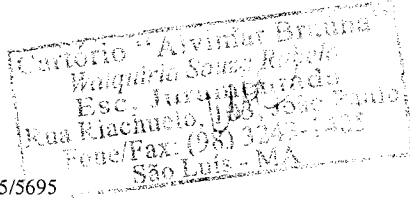 Cartório "Alvimar Braúna"
Walquiria Sousa
Esc. Juramentado
Rua Riachuelo, João Paulo
Fone/Fax: (98) 3243-
São Luís - MA
5/5695